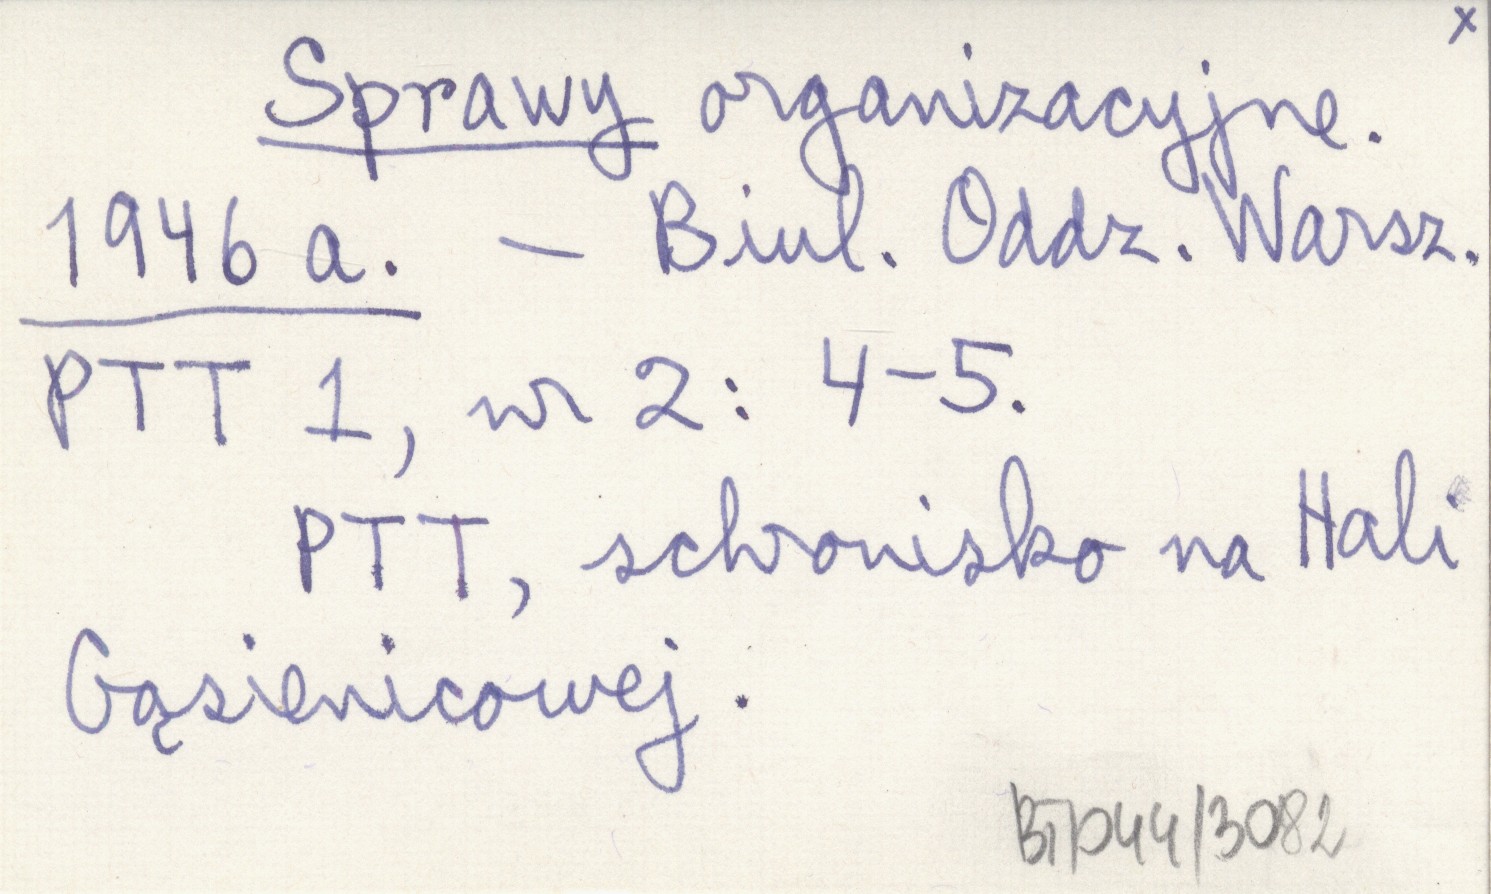 x
Sprawy organizacyjne.
1946 a. – Biul. Oddz. Warsz.
PTT 1, nr 2: 4-5.
PTT, schronisko na Hali
Gąsienicowej.
BTP044/3082